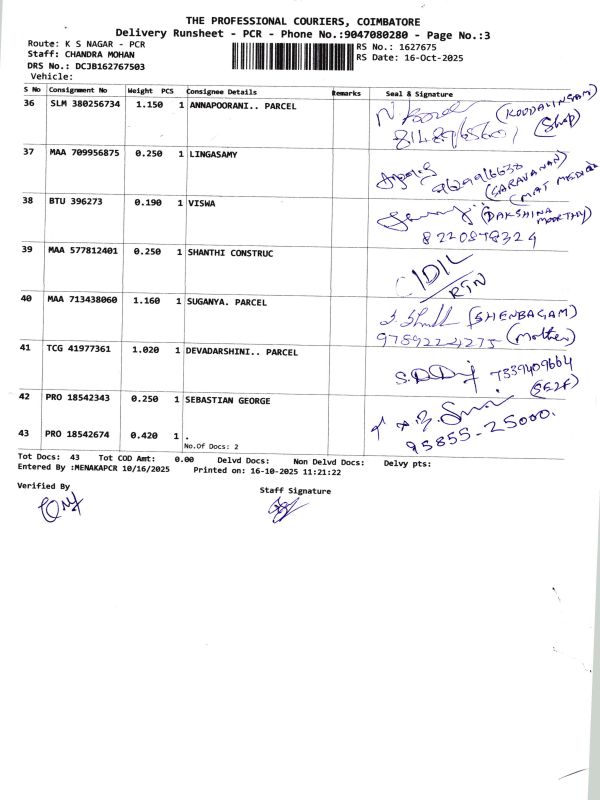 THE PROFESSIONAL COURIERS, COIMBATORE
Delivery Runsheet - PCR - Phone No.:9047080280 - Page No.:3
Route: K S NAGAR - PCR
Staff: CHANDRA MOHAN
DRS No.: DCJB162767503
Vehicle:
RS No.: 1627675
RS Date: 16-Oct-2025
S No Consignment No Weight PCS Consignee Details Remarks Seal & Signature
36 SLM 380256734 1.150 1 ANNAPOORANI.. PARCEL
(KOODALINGAM)
(Shop)
37 MAA 709956875 0.250 1 LINGASAMY
9629916638
(SARAVANAN)
(MAT MEDICAL
38 BTU 396273 0.190 1 VISWA
(DAKSHINA
MOORTHY)
8220878324
39 MAA 577812401 0.250 1 SHANTHI CONSTRUC
CIDIL
RTN
40 MAA 713438060 1.160 1 SUGANYA. PARCEL
(SHENBAGAM)
9789224275 (Mother)
41 TCG 41977361 1.020 1 DEVADARSHINI.. PARCEL
7339409664
(SELF)
42 PRO 18542343 0.250 1 SEBASTIAN GEORGE
95855-25000.
43 PRO 18542674 0.420 1 .
No.Of Docs: 2
Tot Docs: 43 Tot COD Amt: 0.00 Delvd Docs: Non Delvd Docs: Delvy pts:
Entered By :MENAKAPCR 10/16/2025 Printed on: 16-10-2025 11:21:22
Verified By
Staff Signature